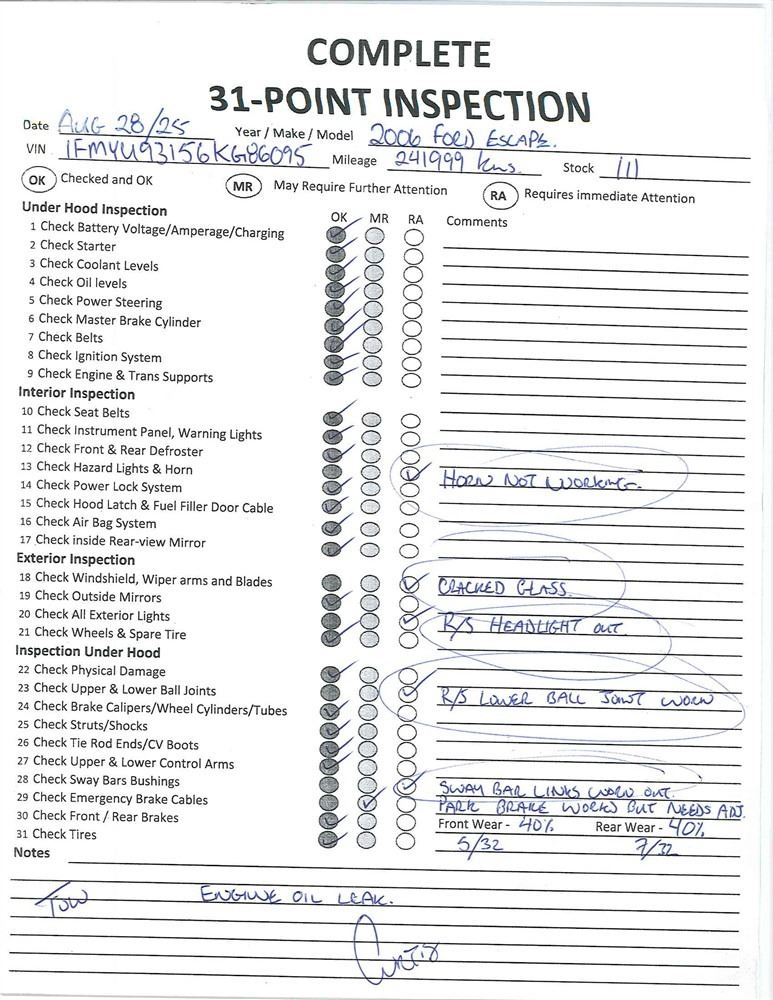 COMPLETE
31-POINT INSPECTION
Date AUG 28/25 Year / Make / Model 2006 FORD ESCAPE.
VIN 1FMYU93156KG86095 Mileage 241999 kms. Stock 111
OK Checked and OK MR May Require Further Attention RA Requires immediate Attention
Under Hood Inspection OK MR RA Comments
1 Check Battery Voltage/Amperage/Charging
2 Check Starter
3 Check Coolant Levels
4 Check Oil levels
5 Check Power Steering
6 Check Master Brake Cylinder
7 Check Belts
8 Check Ignition System
9 Check Engine & Trans Supports
Interior Inspection
10 Check Seat Belts
11 Check Instrument Panel, Warning Lights
12 Check Front & Rear Defroster
13 Check Hazard Lights & Horn HORN NOT WORKING.
14 Check Power Lock System
15 Check Hood Latch & Fuel Filler Door Cable
16 Check Air Bag System
17 Check inside Rear-view Mirror
Exterior Inspection
18 Check Windshield, Wiper arms and Blades CRACKED GLASS.
19 Check Outside Mirrors
20 Check All Exterior Lights R/S HEADLIGHT OUT.
21 Check Wheels & Spare Tire
Inspection Under Hood
22 Check Physical Damage
23 Check Upper & Lower Ball Joints R/S LOWER BALL JOINT WORN
24 Check Brake Calipers/Wheel Cylinders/Tubes
25 Check Struts/Shocks
26 Check Tie Rod Ends/CV Boots
27 Check Upper & Lower Control Arms
28 Check Sway Bars Bushings SWAY BAR LINKS WORN OUT.
29 Check Emergency Brake Cables PARK BRAKE WORKS BUT NEEDS ADJ.
30 Check Front / Rear Brakes Front Wear - 40% Rear Wear - 40%
31 Check Tires 5/32 7/32
Notes
TOW ENGINE OIL LEAK.
CURTIS